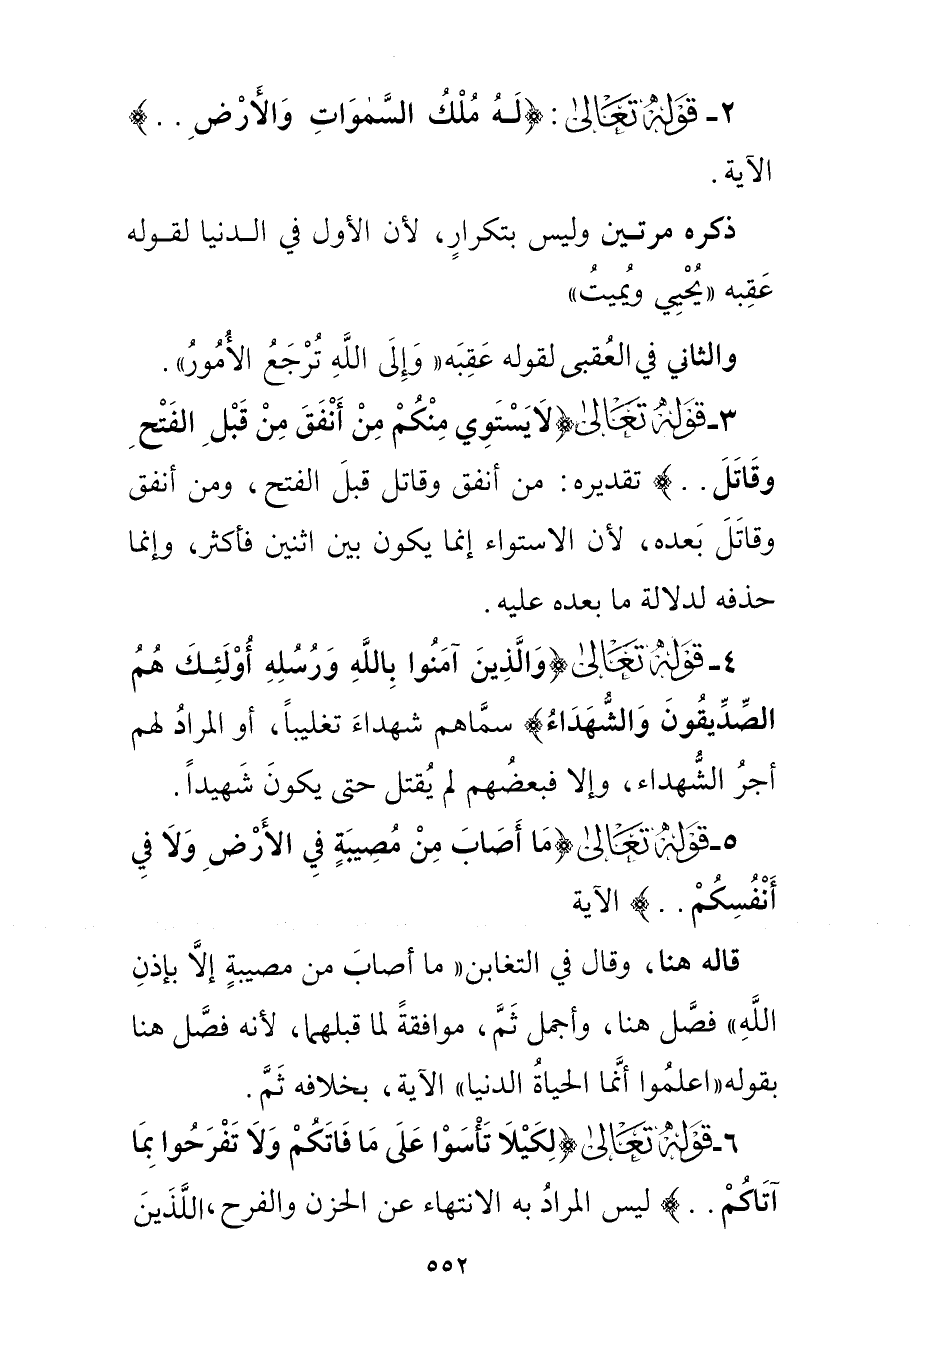 ٢ـ قَوْلُهُ تَعَالىٰ : ﴿لَـهُ مُلْكُ السَّمٰوَاتِ وَالأَرْضِ . . ﴾
الآية .
ذكره مرتـين وليس بتكرارٍ، لأن الأول في الـدنيا لقـوله
عَقِبه «يُحْيِي ويُميتُ»
والثاني في العُقبى لقوله عَقِبَه« وَإِلَى اللَّهِ تُرْجَعُ الأُمُورُ» .
٣ـ قَوْلُهُ تَعَالىٰ ﴿لَا يَسْتَوِي مِنْكُمْ مِنْ أَنْفَقَ مِنْ قَبْلِ الفَتْحِ
وقَاتَلَ . . ﴾ تقديره: من أنفق وقاتل قبلَ الفتح، ومن أنفق
وقاتَلَ بَعده، لأن الاستواء إنما يكون بين اثنين فأكثر، وإنما
حذفه لدلالة ما بعده عليه .
٤ـ قَوْلُهُ تَعَالىٰ ﴿وَالَّذِينَ آمَنُوا بِاللَّهِ وَرُسُلِهِ أُوْلَئِـكَ هُمُ
الصِّدِّيقُونَ وَالشُّهَدَاءُ﴾ سمَّاهم شهداءَ تغليباً، أو المرادُ لهم
أجرُ الشُّهداء، وإلا فبعضُهم لم يُقتل حتى يكونَ شَهيداً .
٥ـ قَوْلُهُ تَعَالىٰ ﴿مَا أَصَابَ مِنْ مُصِيبَةٍ فِي الأَرْضِ وَلَا فِي
أَنْفُسِكُمْ . . ﴾ الآية
قاله هنا، وقال في التغابن« ما أصابَ من مصيبةٍ إلَّا بإذنِ
اللَّهِ» فصَّل هنا، وأجمل ثَمَّ، موافقةً لما قبلهما، لأنه فصَّل هنا
بقوله«اعلمُوا أنَّما الحياةُ الدنيا» الآية، بخلافه ثَمَّ .
٦ـ قَوْلُهُ تَعَالىٰ ﴿لِكَيْلَا تَأْسَوْا عَلَى مَا فَاتَكُمْ وَلَا تَفْرَحُوا بِمَا
آتَاكُمْ . . ﴾ ليس المرادُ به الانتهاء عن الحزن والفرح ،اللَّذَينَ
٥٥٢